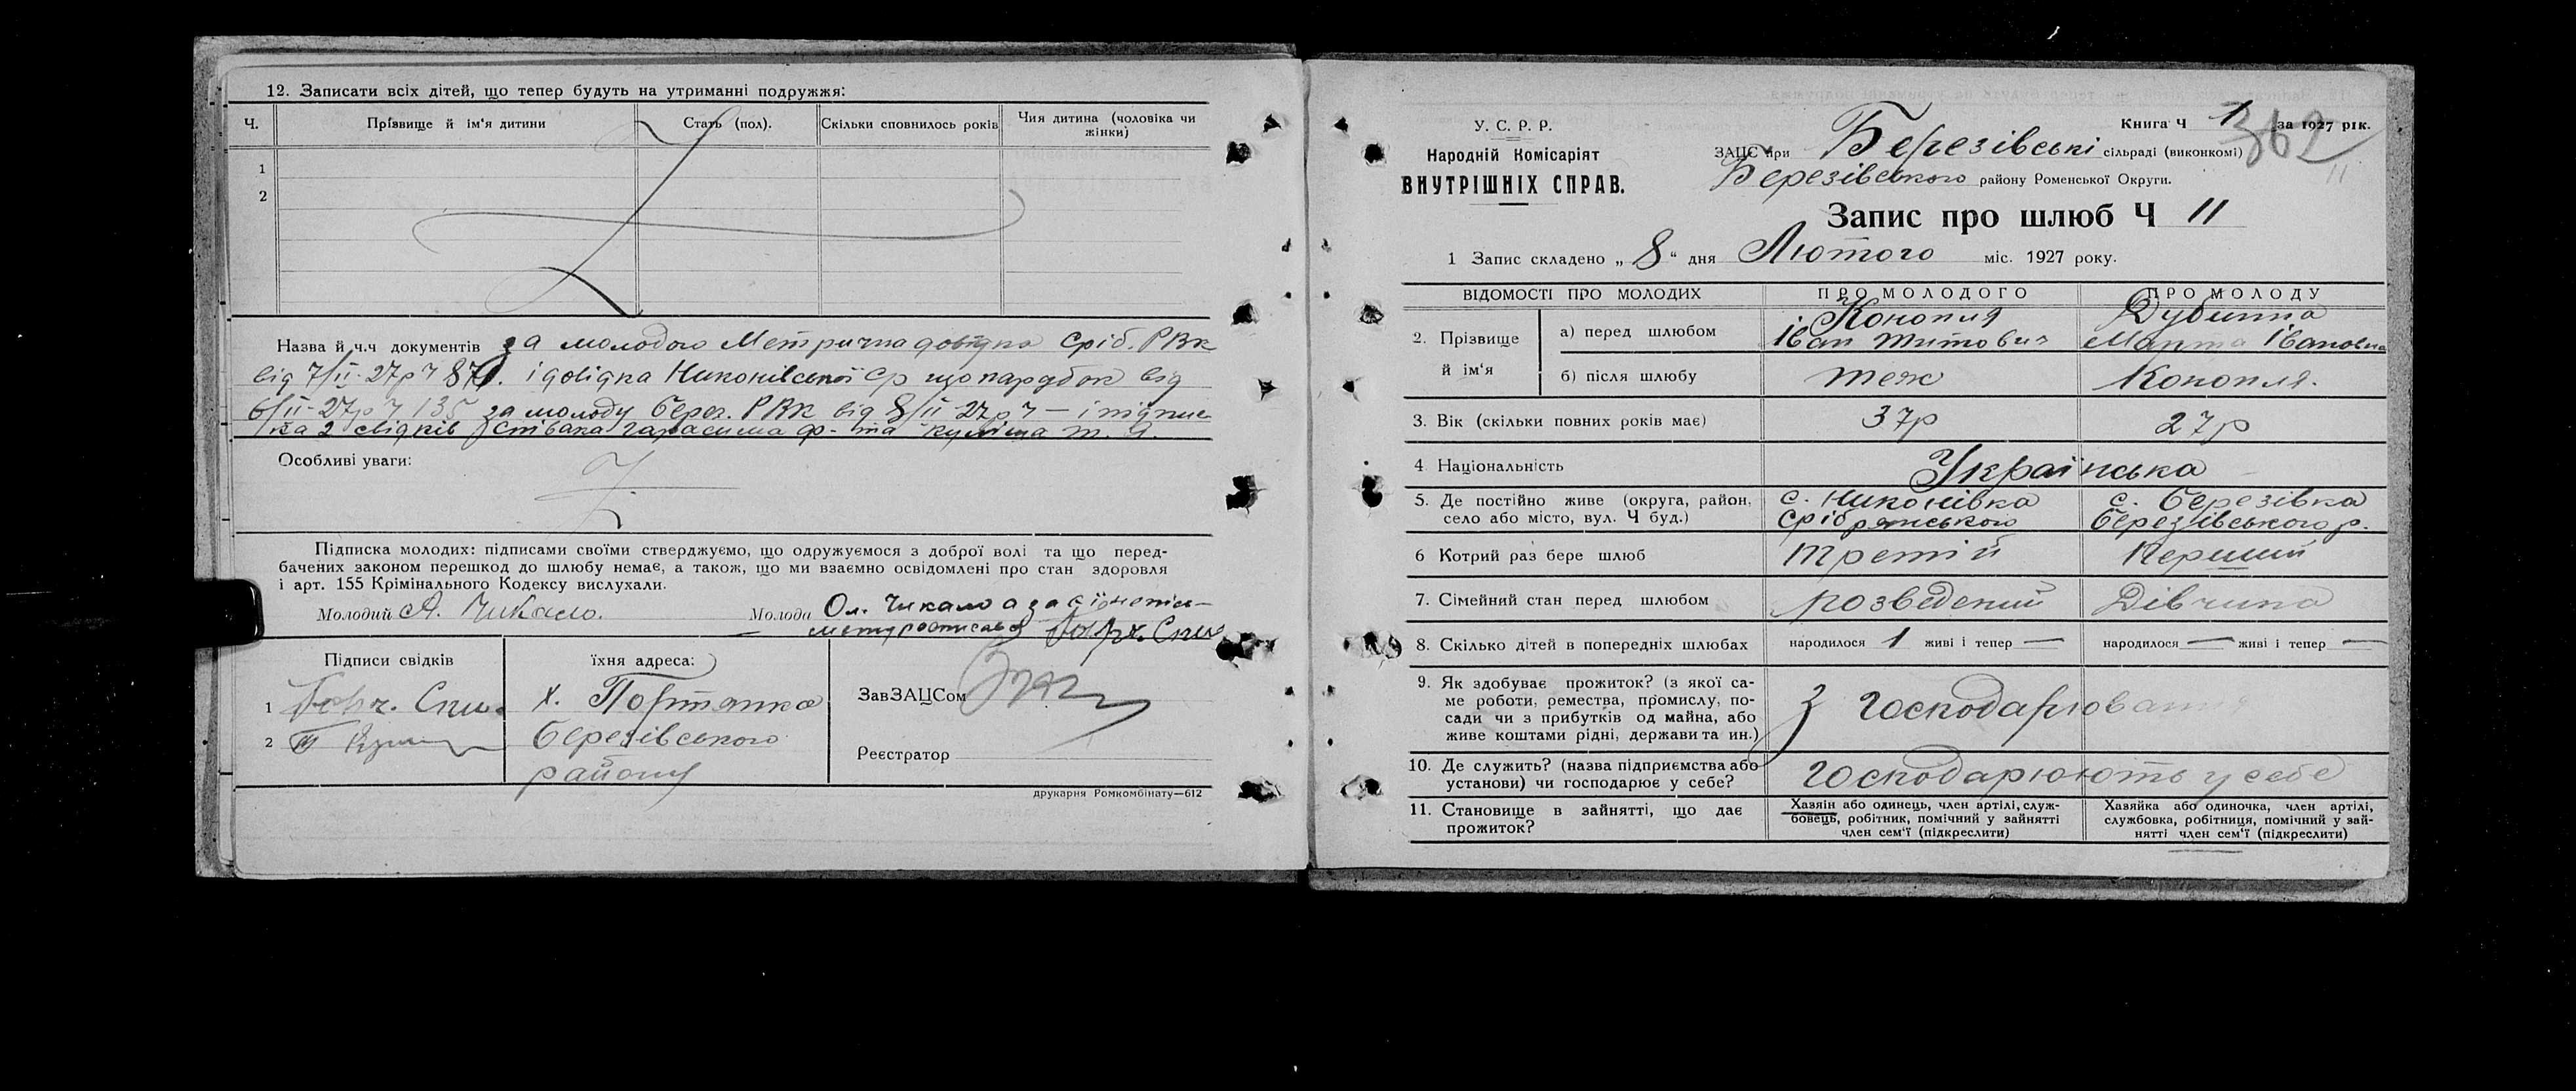 12. Записати всіх дітей, що тепер будуть на утриманні подружжя:
Ч. Прізвище й ім'я дитини Стать (пол). Скільки сповнилось років Чия дитина (чоловіка чи жінки)
1
2
Назва й ч.ч документів за молодого Метрична довідка Сріб. РВК
від 7/II-27р ч 87 . і довідка Никонівської ср що парубок від
6/II-27р ч 135 за молоду Берез. РВК від 8/II 27р ч — і підпис
ка 2 свідків Гарасима ф- та т. Я.
Особливі уваги:
Підписка молодих: підписами своїми стверджуємо, що одружуємося з доброї волі та що перед-
бачених законом перешкод до шлюбу немає, а також, що ми взаємно освідомлені про стан здоровля
і арт. 155 Крімінального Кодексу вислухали.
Молодий А. Чикало. Молода Ол. Чикало а за її неписьм-
Підписи свідків їхня адреса:
1 х. Портянка ЗавЗАЦСом
2 Березівського
району Реєстратор
друкарня Ромкомбінату—612
У. С. Р. Р.
Народній Комісаріят
ВНУТРІШНІХ СПРАВ.
Книга Ч 1 за 1927 рік.
362
ЗАЦС при Березівські сільраді (виконкомі)
11
Березівського району Роменської Округи.
Запис про шлюб Ч 11
1 Запис складено „ 8 " дня Лютого міс. 1927 року.
ВІДОМОСТІ ПРО МОЛОДИХ ПРО МОЛОДОГО ПРО МОЛОДУ
2. Прізвище й ім'я а) перед шлюбом Конопля Іван Титович Дубинна Марта Івановна
б) після шлюбу теж Конопля.
3. Вік (скільки повних років має) 37р 27р
4 Національність Українська
5. Де постійно живе (округа, район, с. Никонівка с. Березівка
село або місто, вул. Ч буд.) Срібрянського Березівського р.
6 Котрий раз бере шлюб третій Перший
7. Сімейний стан перед шлюбом розведений Дівчина
8. Скілько дітей в попередніх шлюбах народилося 1 живі і тепер — народилося — живі і тепер —
9. Як здобуває прожиток? (з якої са-
ме роботи, ремества, промислу, по-
сади чи з прибутків од майна, або
живе коштами рідні, держави та ин.) З господарювання
10. Де служить? (назва підприємства або
установи) чи господарює у себе? господарюють у себе
11. Становище в зайнятті, що дає прожиток?
Хазяін або одинець, член артілі, служ-
бовець, робітник, помічний у зайнятті
член сем'ї (підкреслити)
Хазяйка або одиночка, член артілі,
службовка, робітниця, помічний у зай-
нятті член сем'ї (підкреслити)